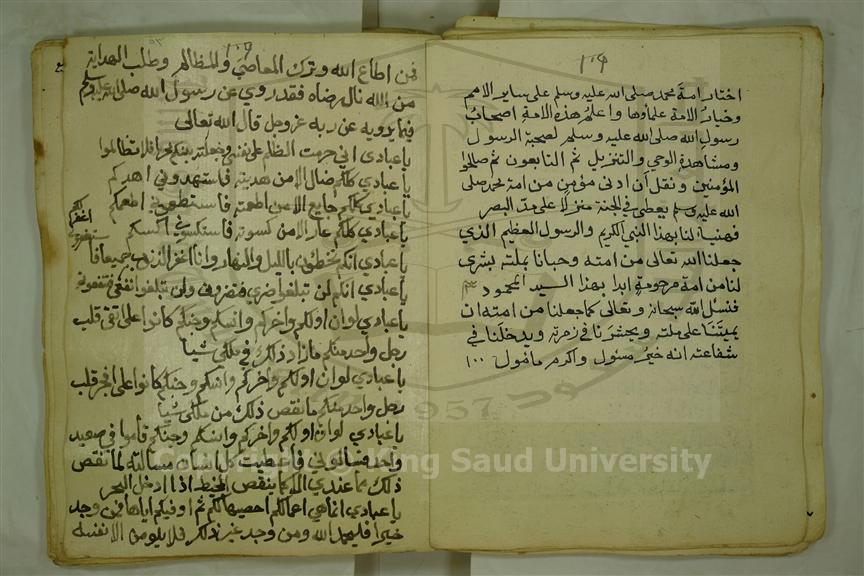 ١٠٤
اختار امة محمد صلى الله عليه وسلم على ساير الامم
وخيار الامة علماوها واعلم هذه الامة اصحاب
رسول الله صلى الله عليه وسلم لصحبة الرسول
ومشاهدة الوحي والتنزيل ثم التابعون ثم صالحوا
المؤمنين ونقل ان ادنى مؤمن من امة محمد صلى
الله عليه وسلم يعطى في الجنة منزلا على مد البصر
فهنيئا لنا بهذا النبي الكريم والرسول العظيم الذي
جعلنا الله تعالى من امته وحبانا بملته بشرى
لنا من امة مرحومة ابدا بهذا السيد المحمود
فنسئل الله سبحانه وتعالى كما جعلنا من امته ان
يميتنا على ملته ويحشرنا في زمرته ويدخلنا في
شفاعته انه خير مسئول واكرم مامول
فمن اطاع الله وترك المعاصي والمظالم وطلب الهداية
من الله نال رضاه فقد روي عن رسول الله صلى الله عليه وسلم
فيما يرويه عن ربه عز وجل قال الله تعالى
يا عبادي اني حرمت الظلم على نفسي وجعلته بينكم محرما فلا تظالموا
يا عبادي كلكم ضال الا من هديته فاستهدوني اهدكم
يا عبادي كلكم جايع الا من اطعمته فاستطعموني اطعمكم
يا عبادي كلكم عار الا من كسوته فاستكسوني اكسكم
يا عبادي انكم تخطئون بالليل والنهار وانا اغفر الذنوب جميعا فا
ستغفروني
اغفر لكم
يا عبادي انكم لن تبلغوا ضري فتضروني ولن تبلغوا نفعي فتنفعوني
يا عبادي لو ان اولكم واخركم وانسكم وجنكم كانوا على اتقى قلب
رجل واحد منكم ما زاد ذلك في ملكي شيا
يا عبادي لو ان اولكم واخركم وانسكم وجنكم كانوا على افجر قلب
رجل واحد منكم ما نقص ذلك من ملكي شيا
يا عبادي لو ان اولكم واخركم وانسكم وجنكم قاموا في صعيد
واحد فسالوني فاعطيت كل انسان مسالته لما نقص
ذلك مما عندي الا كما ينقص المخيط اذا ادخل البحر
يا عبادي انما هي اعمالكم احصيها لكم ثم اوفيكم اياها فمن وجد
خيرا فليحمد الله ومن وجد غير ذلك فلا يلومن الا نفسه